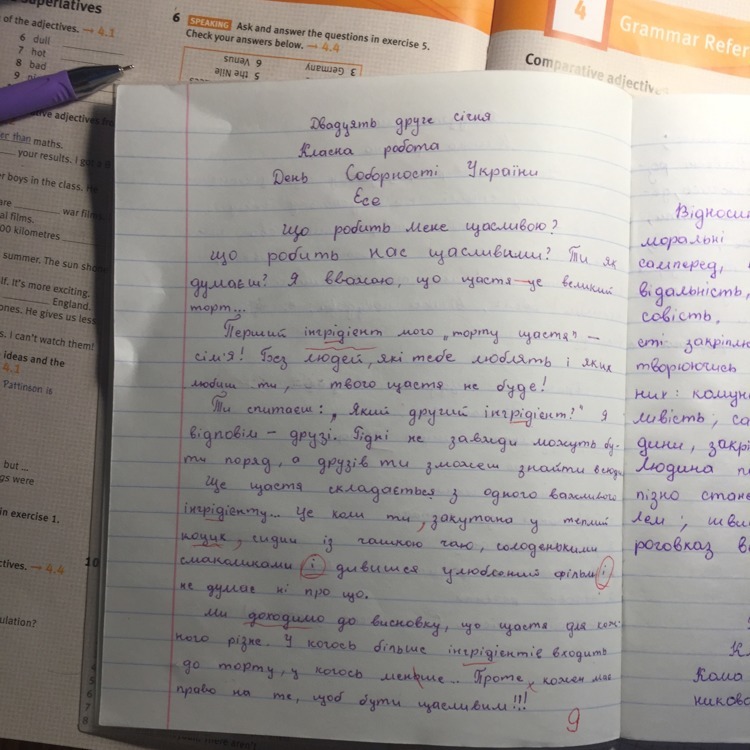 uperlatives
of the adjectives. → 4.1
6 dull
7 hot
8 bad
9
ative adjectives
er than maths.
your results. I got a
er boys in the class. He
are war films
al films.
00 kilometres
summer. The sun sho
lf. It's more exciting.
England.
ones. He gives us less
s. I can't watch them!
ideas and the
4.1
Pattinson is
but ...
gs were
in exercise 1.
ctives. → 4.4
ulation?
6 SPEAKING Ask and answer the questions in exercise 5.
Check your answers below. → 4.4
3 Germany 6 Venus
5 the Nile
10
4
5
6
7
8
4
Grammar Refer
Comparative adjectives
Двадцять друге січня
Класна робота
День Соборності України
Есе
Що робить мене щасливою?
Що робить нас щасливими? Ти як
думаєш? Я вважаю, що щастя – це великий
торт...
Перший інгрідієнт мого „торту щастя" –
сім'я! Без людей, які тебе люблять і яких
любиш ти, твого щастя не буде!
Ти спитаєш: „Який другий інгрідієнт?" Я
відповім – друзі. Рідні не завжди можуть бу-
ти поряд, а друзів ти зможеш знайти всюди
Ще щастя складається з одного важливого
інгрідієнту... Це коли ти, закутана у теплий
коцик, сидиш із чашкою чаю, солоденькими
смаколиками і дивишся улюблений фільм і
не думає ні про що.
Ми доходимо до висновку, що щастя для кож-
ного різне. У когось більше інгрідієнтів входить
до торту, у когось менше... Проте, кожен має
право на те, щоб бути щасливим!!!
9
Відносин
моральні
самперед,
відальність,
совість.
сті закріплю
творюючись
ник: комун
ливість; са
дини, закрі
Людина п
пізно стане
лем; шви
роговказ в
Кл
Кома
никова